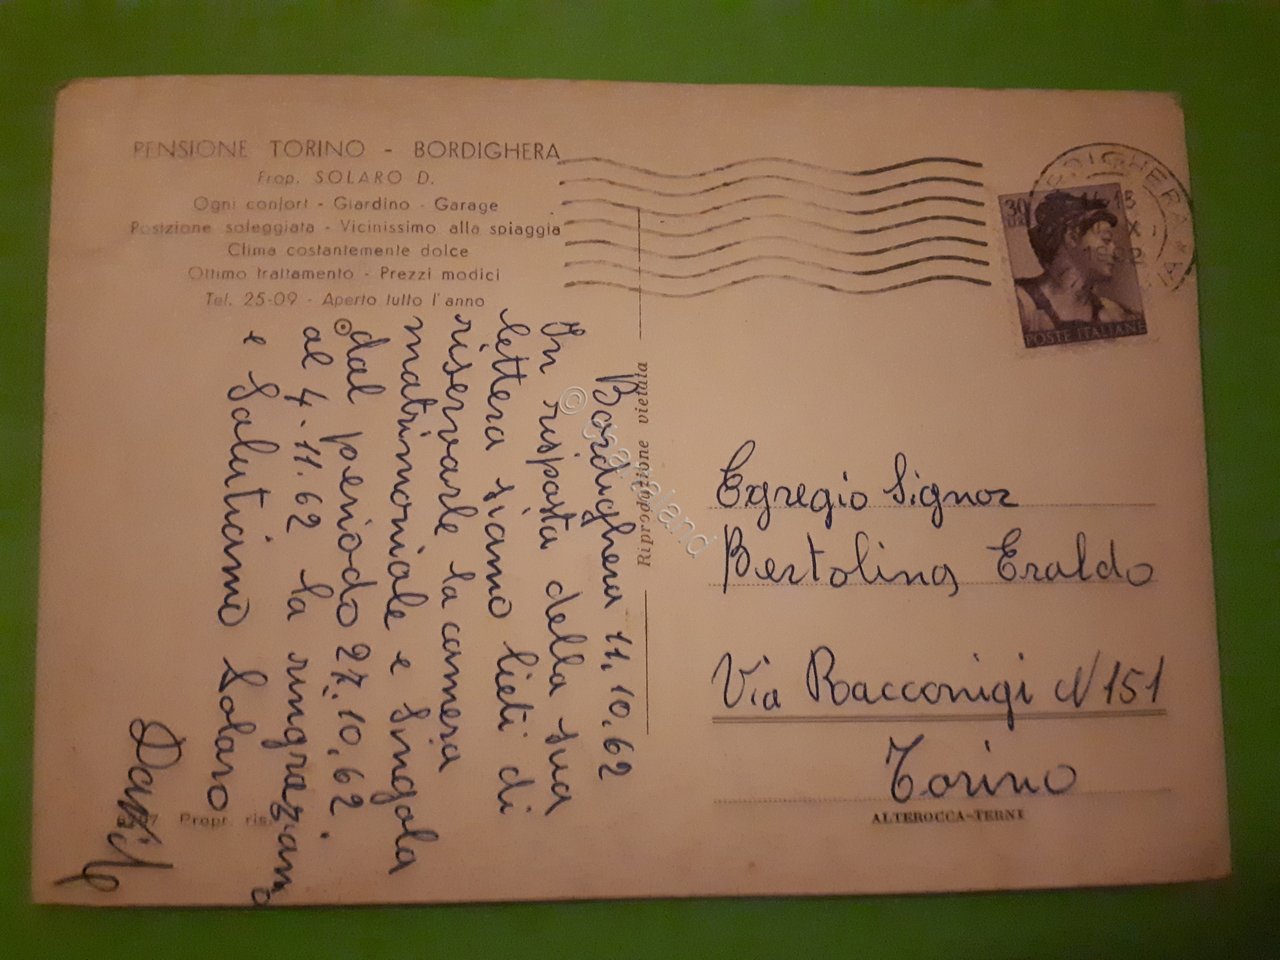 PENSIONE TORINO - BORDIGHERA
Prop. SOLARO D.
Ogni confort - Giardino - Garage
Posizione soleggiata - Vicinissimo alla spiaggia
Clima costantemente dolce
Ottimo trattamento - Prezzi modici
Tel. 25-09 - Aperto tutto l'anno
Bordighera 11.10.62
In risposta della sua
lettera siamo lieti di
riservarle la camera
matrimoniale e singola
dal periodo 27.10.62
al 4.11.62 la ringraziamo
e Salutiamo Solaro
Propr. ris.
Riproduzione vietata
© cartaland
BORDIGHERA
30
POSTE ITALIANE
Egregio Signor
Bertolina Eraldo
Via Racconigi N 151
Torino
ALTEROCCA-TERNI